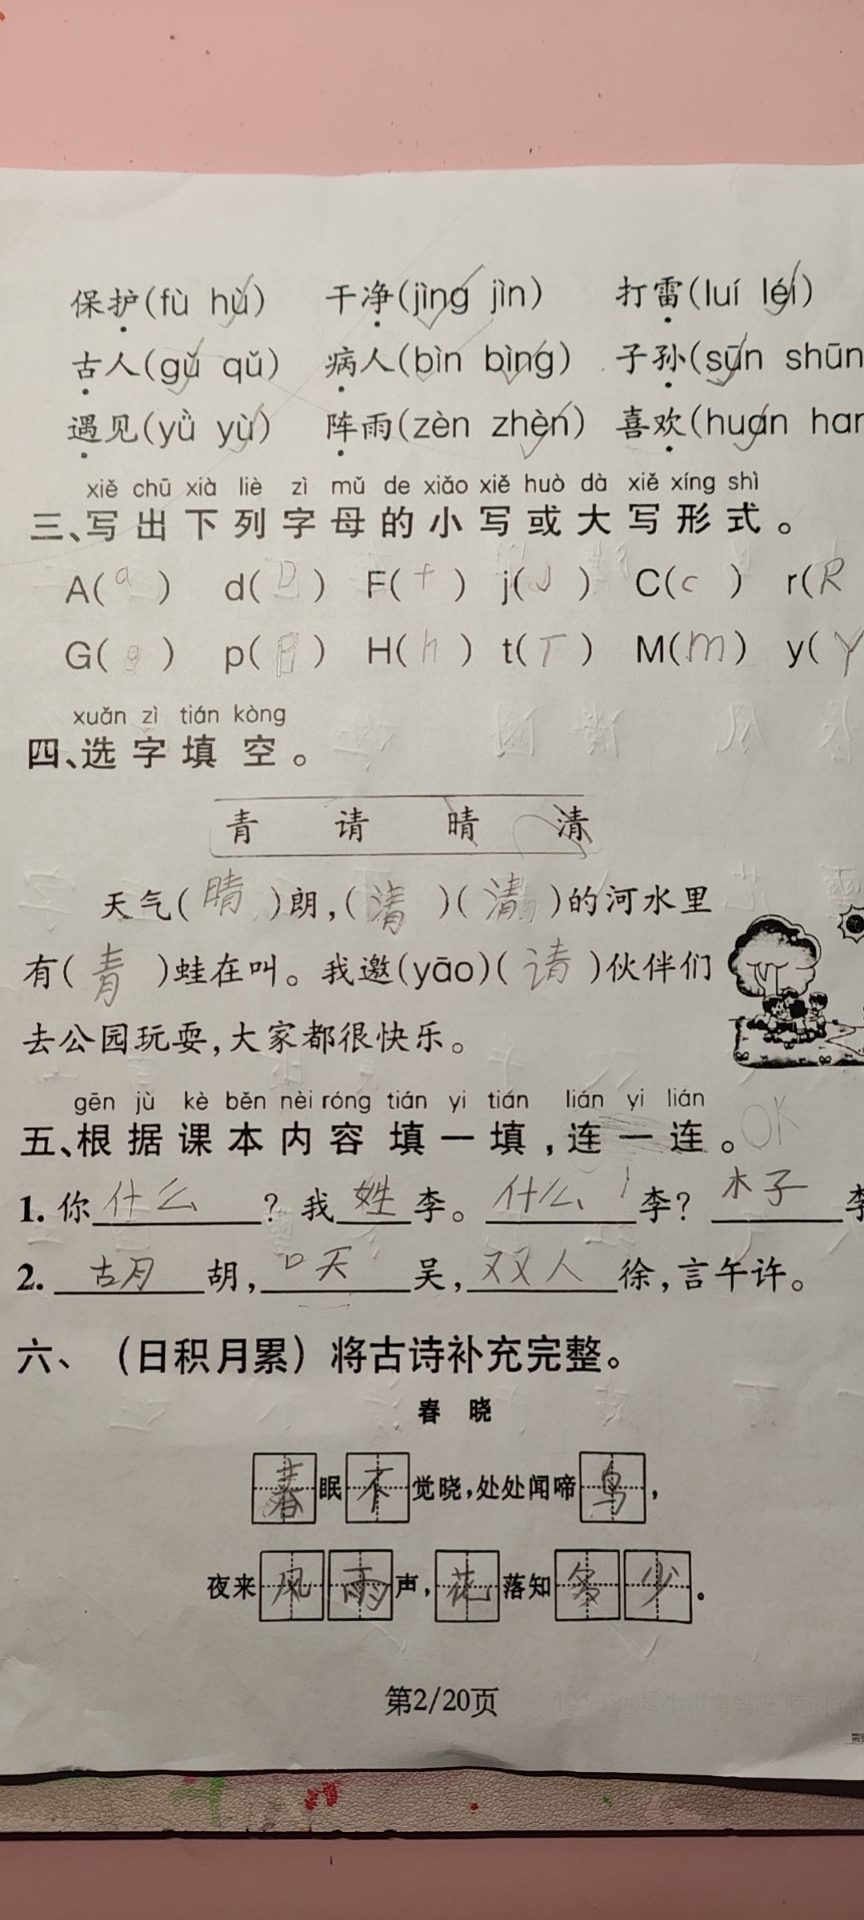 保护(fù hù) 干净(jìng jìn) 打雷(luí léi)
古人(gǔ qǔ) 病人(bìn bìng) 子孙(sūn shūn
遇见(yǜ yù) 阵雨(zèn zhèn) 喜欢(huan han
xiě chū xià liè zì mǔ de xiǎo xiě huò dà xiě xíng shì
三、写出下列字母的小写或大写形式。
A(a) d(D) F(f) j(J) C(c) r(R
G(g) p(P) H(h) t(T) M(m) y(Y
xuǎn zì tián kòng
四、选字填空。
青 请 晴 清
天气(晴)朗,(清)(清)的河水里
有(青)蛙在叫。我邀(yāo)(请)伙伴们
去公园玩耍,大家都很快乐。
gēn jù kè běn nèi róng tián yi tián lián yi lián
五、根据课本内容填一填,连一连。OK
1. 你什么?我姓李。什么李?木子李
2. 古月胡,口天吴,双人徐,言午许。
六、(日积月累)将古诗补充完整。
春 晓
春眠不觉晓,处处闻啼鸟,
夜来风雨声,花落知多少。
第2/20页